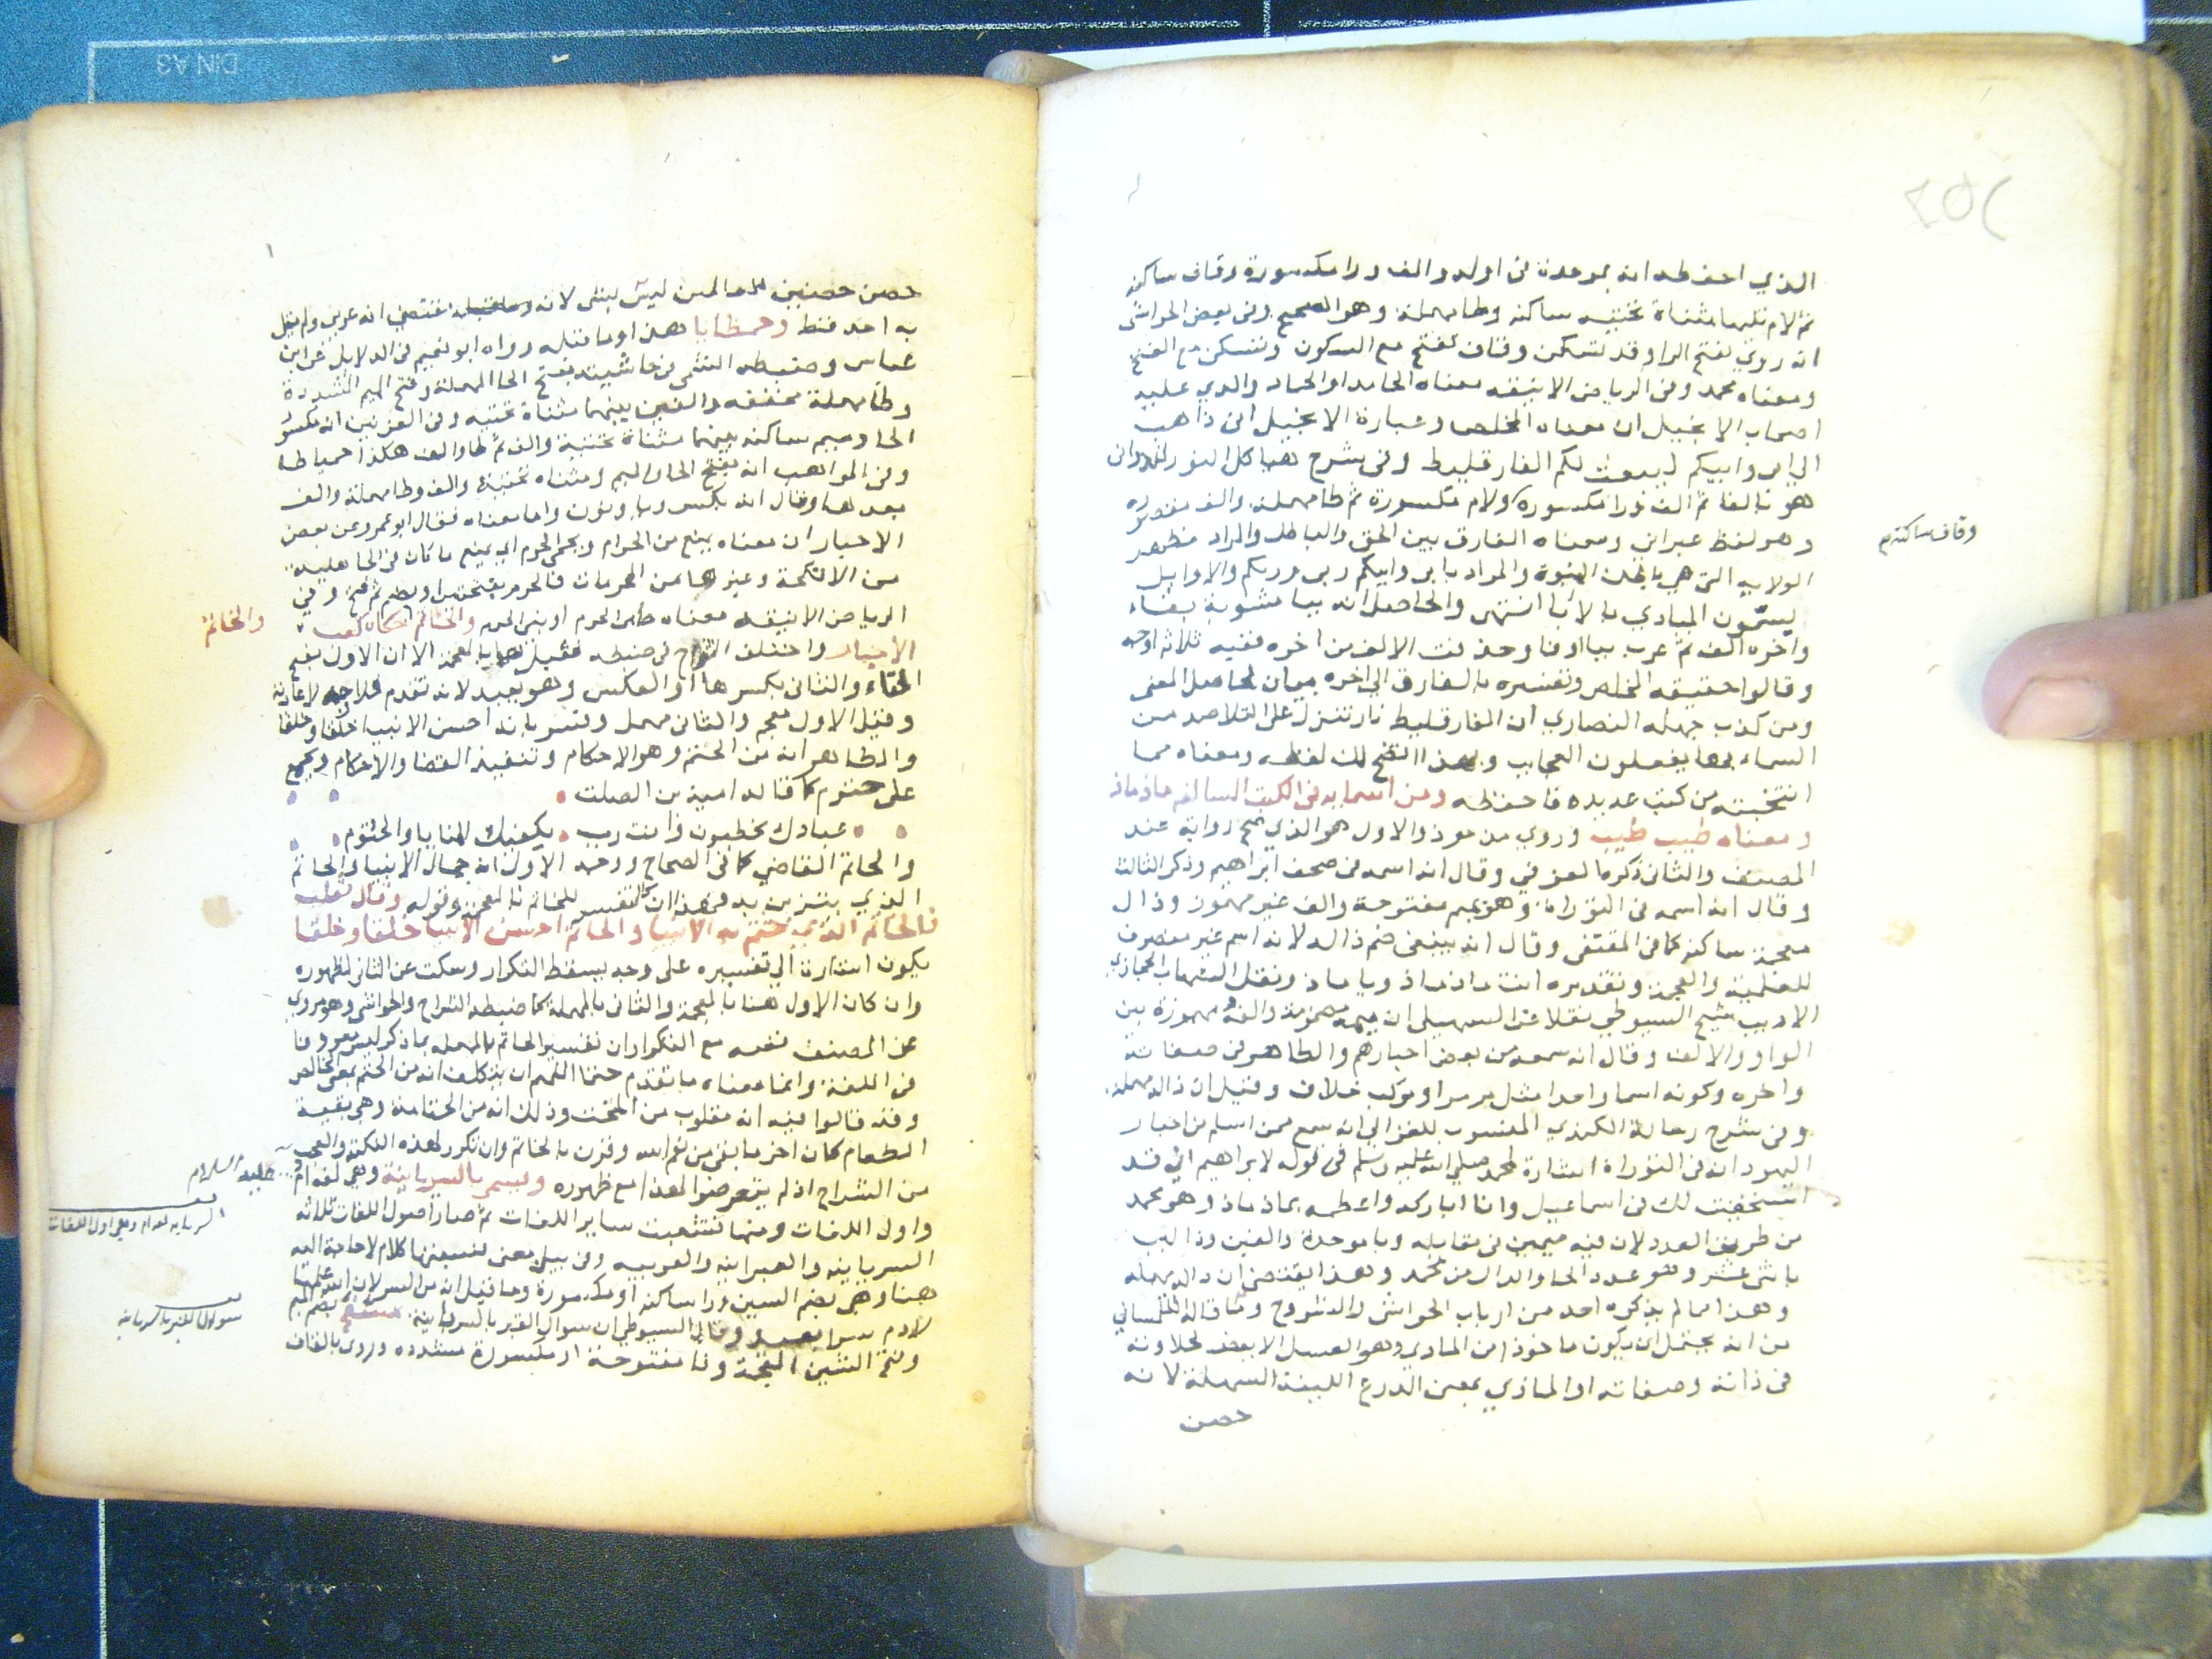 الذي احفظه انه بموحدة في اوله والف ورا مكسورة وقاف ساكنه
ثم لام تليها مثناة تحتيه ساكنه وطا مهملة وهو الصحيح وفي بعض الحواشي
انه روي بفتح الرا وقد تسكن وقاف تفتح مع السكون وتسكن مع الفتح
ومعناه محمد وفي الرياض الانيقه معناه الحامد او الحماد والذي عليه
اصحاب الانجيل ان معناه المخلص وعبارة الانجيل اني ذاهب
الى ابي وابيكم ليبعث لكم الفارقليط وفي شرح هياكل النور للدواني
هو بالفا ثم الف ورا مكسوره ولام مكسورة ثم طا مهملة والف مقصوره
وقاف ساكنه م
وهو لفظ عبراني ومعناه الفارق بين الحق والباطل والمراد مظهر
الولايه التي هي باطن النبوة والمراد بابي وابيكم ربي وربكم والاوايل
يسمون المبادي بالابا انتهى والحاصل انه ببا مشوبة بفاء
واخره الف ثم عرب ببا او فا وحذفت الالف من اخره ففيه ثلاثه اوجه
وقالوا حقيقه المخلص وتفسيره بالفارق الى اخره بيان لحاصل المعنى
ومن كذب جهله النصارى ان الفارقليط نار تنزل على التلاميذ من
السماء بها يفعلون العجايب وبهذا اتضح لك لفظه ومعناه مما
انتخبته من كتب عديده فاحفظه ومن اسمايه في الكتب السالفه ماذ ماذ
ومعناه طيب طيب وروي مد موذ والاول هو الذي صح روايه عند
المصنف والثاني ذكره العزفي وقال انه اسمه في صحف ابراهيم وذكر الثالث
وقال انه اسمه في التوراة وهو بميم مفتوحة والف غير مهموز وذال
معجمة ساكنه كما في المقتفى وقال انه ينبغي ضم ذاله لانه اسم غير منصرف
للعلمية والعجمة وتقديره انت ماذ ماذ ويا ماذ ونقل الشهاب الحجازي
الاديب شيخ السيوطي نقلا عن السهيلي ان ميمه مضمومة والفه مهموزة بين
الواو والالف وقال انه سمعه من بعض احبارهم والظاهر في صفاته
واخره وكونه اسما واحدا مثل مرمر او مركب خلاف وقيل ان ذاله مهملة
وفي شرح رسالة الكندي المنسوب للغزالي انه سمع ممن اسلم من احبار
اليهود انه في التوراة اشارة لمحمد صلى الله عليه وسلم في قوله لابراهيم اني قد
استجبت لك في اسماعيل وانا اباركه واعظمه بماذ ماذ وهو محمد
من طريق العدد لان فيه ميمين في مقابله وبا موحدة والفين وذالين
باثني عشر وهو عدد الحا والدال من محمد وهذا يقتضي ان داله مهمله
وهذا مما لم يذكره احد من ارباب الحواشي والشروح وما قاله التلمساني
من انه يحتمل ان يكون ماخوذا من الماذي وهو العسل الابيض لحلاوته
في ذاته وصفاته او الماذي بمعنى الدرع اللينة السهلة لانه
حصن
حصن حصين للعالمين ليس بشي لانه وما قبله يقتضي انه عربي ولم يقل
به احد قط وحمطايا هذا وما قبله رواه ابو نعيم في الدلايل عن ابن
عباس وضبطه الشمني في حاشيته بفتح الحا المهملة وفتح الميم المشددة
وطا مهملة مخففه والفين بينهما مثناة تحتيه وفي الغريبين انه بكسر
الحا وميم ساكنه بينهما مثناة تحتية والف ثم طا والف هكذا حمياطا
وفي المواهب انه بفتح الحا والميم ومثناه تحتية والف وطا مهملة والف
بعدها وقال انه بكسر وبا ونون واما معناه فقال ابو عمرو عن بعض
الاحبار ان معناه يمنع من الحرام ويحمي الحرم اي يمنع ما كان في الجاهلية
من الانكحة وغيرها من المحرمات فالحرم بفتحتين او بضم ثم فتح وفي
الرياض الانيقه معناه حامي الحرم او نبي الحرم والخاتم حكاه كعب
والخاتم
الاحبار واختلف الشراح في ضبطه فقيل هما بالمعجمة الا ان الاول بفتح
التاء والثاني بكسرها او العكس وهو بعيد لانه تقدم فلا وجه لاعادته
وقيل الاول معجم والثاني مهمل وفسر بانه احسن الانبيا خلقا وخلقا
والظاهر انه من الحتم وهو الاحكام وتنفيذ القضا والاحكام وجمع
على حتوم كما قاله امية بن الصلت
عبادك يخطيون وانت رب بكفيك المنايا والحتوم
والحاتم القاضي كما في الصحاح ووجه الاول انه جمال الانبيا والخاتم
الذي يتزين به فهذا ان كان تفسير للخاتم بالمعجمة وقوله وقال ثعلب
فالخاتم الذي ختم به الانبيا والحاتم احسن الانبيا خلقا وخلقا
يكون اشارة الى تفسيره على وجه يسقط التكرار وسكت عن الثاني لظهوره
وان كان الاول هنا بالمعجمة والثاني بالمهملة كما ضبطه الشراح والحواشي وهو مروي
عن المصنف نفسه مع التكرار ان تفسير الحاتم بالمهمله بما ذكر ليس معروفا
في اللغة وانما معناه ما تقدم حتما اللهم ان يتكلف انه من الحتم بمعنى الخالص
وقد قالوا فيه انه مقلوب من المحت وذلك انه من الحتامة وهي بقية
الطعام كان اخر ما بقي من نعم الله وقرن بالخاتم وان تكرر لهذه النكتة والعجب
من الشراح اذ لم يتعرضوا لهذا مع ظهوره ويسمى بالسريانية وهي لغة ادم
عليه السلام
واول اللغات ومنها تشعبت ساير اللغات ثم صار اصول اللغات ثلاثه
السريانيه لغة ادم وهي اول اللغات
السريانيه والعبرانيه والعربيه وفي بيان معنى نسبتها كلام لا حاجة اليه
هنا وهي بضم السين ورا ساكنه او مكسورة وما قيل انه من السر لان الله علمها
لادم سرا بعيد وقال السيوطي ان سوال القبر بالسريانية مشفح بضم الميم
سوال القبر بالسريانيه
وفتح الشين المعجمة وفا مفتوحة او مكسورة مشدده وروي بالقاف